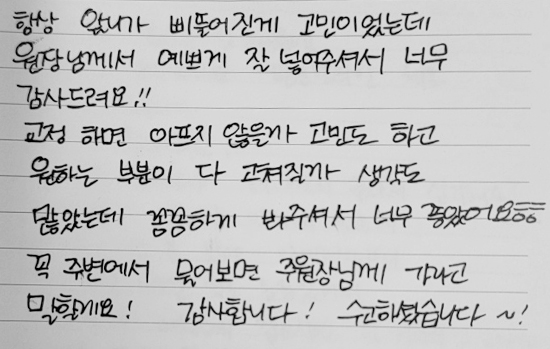 항상 앞니가 삐뚤어진게 고민이었는데
원장님께서 예쁘게 잘 넣어주셔서 너무
감사드려요!!
교정 하면 아프지 않을까 고민도 하고
원하는 부분이 다 고쳐질까 생각도
많았는데 꼼꼼하게 봐주셔서 너무 좋았어요ㅎㅎ
꼭 주변에서 물어보면 주원장님께 가라고
말할게요! 감사합니다! 수고하셨습니다~!